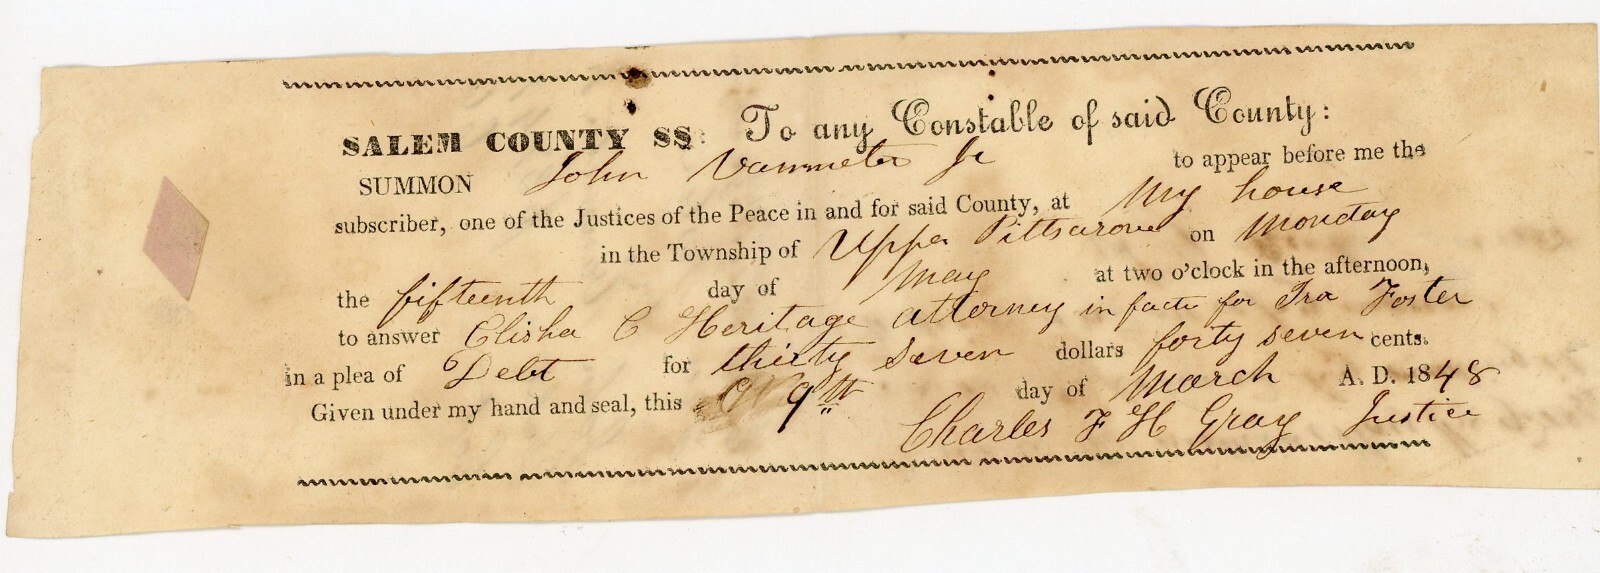 SALEM COUNTY SS: To any Constable of said County:
SUMMON John Vanmeter Jr to appear before me the
subscriber, one of the Justices of the Peace in and for said County, at My house
in the Township of Upper Pittsgrove on Monday
the fifteenth day of May at two o'clock in the afternoon,
to answer Elisha C Heritage attorney in fact for Ira Foster
in a plea of Debt for thirty seven dollars forty seven cents.
Given under my hand and seal, this 9th day of March A. D. 1848
Charles F H Gray Justice